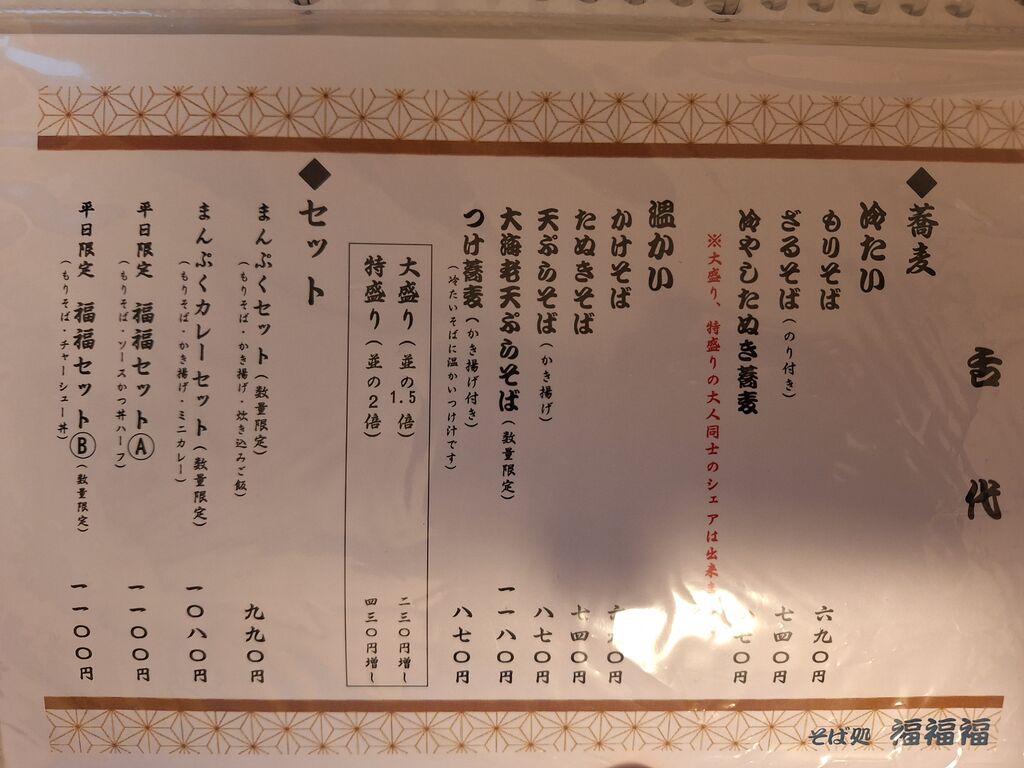 舌代
◆蕎麦
冷たい
もりそば 六九〇円
ざるそば(のり付き) 七四〇円
冷やしたぬき蕎麦 七〇円
※大盛り、特盛りの大人同士のシェアは出来ま
温かい
かけそば 六九〇円
たぬきそば 七四〇円
天ぷらそば(かき揚げ) 八七〇円
大海老天ぷらそば(数量限定) 一一八〇円
つけ蕎麦(かき揚げ付き) 八七〇円
(冷たいそばに温かいつけ汁です)
大盛り(並の1.5倍) 二三〇円増し
特盛り(並の2倍) 四三〇円増し
◆セット
まんぷくセット(数量限定) 九九〇円
(もりそば・かき揚げ・炊き込みご飯)
まんぷくカレーセット(数量限定) 一〇八〇円
(もりそば・かき揚げ・ミニカレー)
平日限定 福福セットⒶ 一一〇〇円
(もりそば・ソースかつ丼ハーフ)
平日限定 福福セットⒷ(数量限定) 一一〇〇円
(もりそば・チャーシュー丼)
そば処 福福福